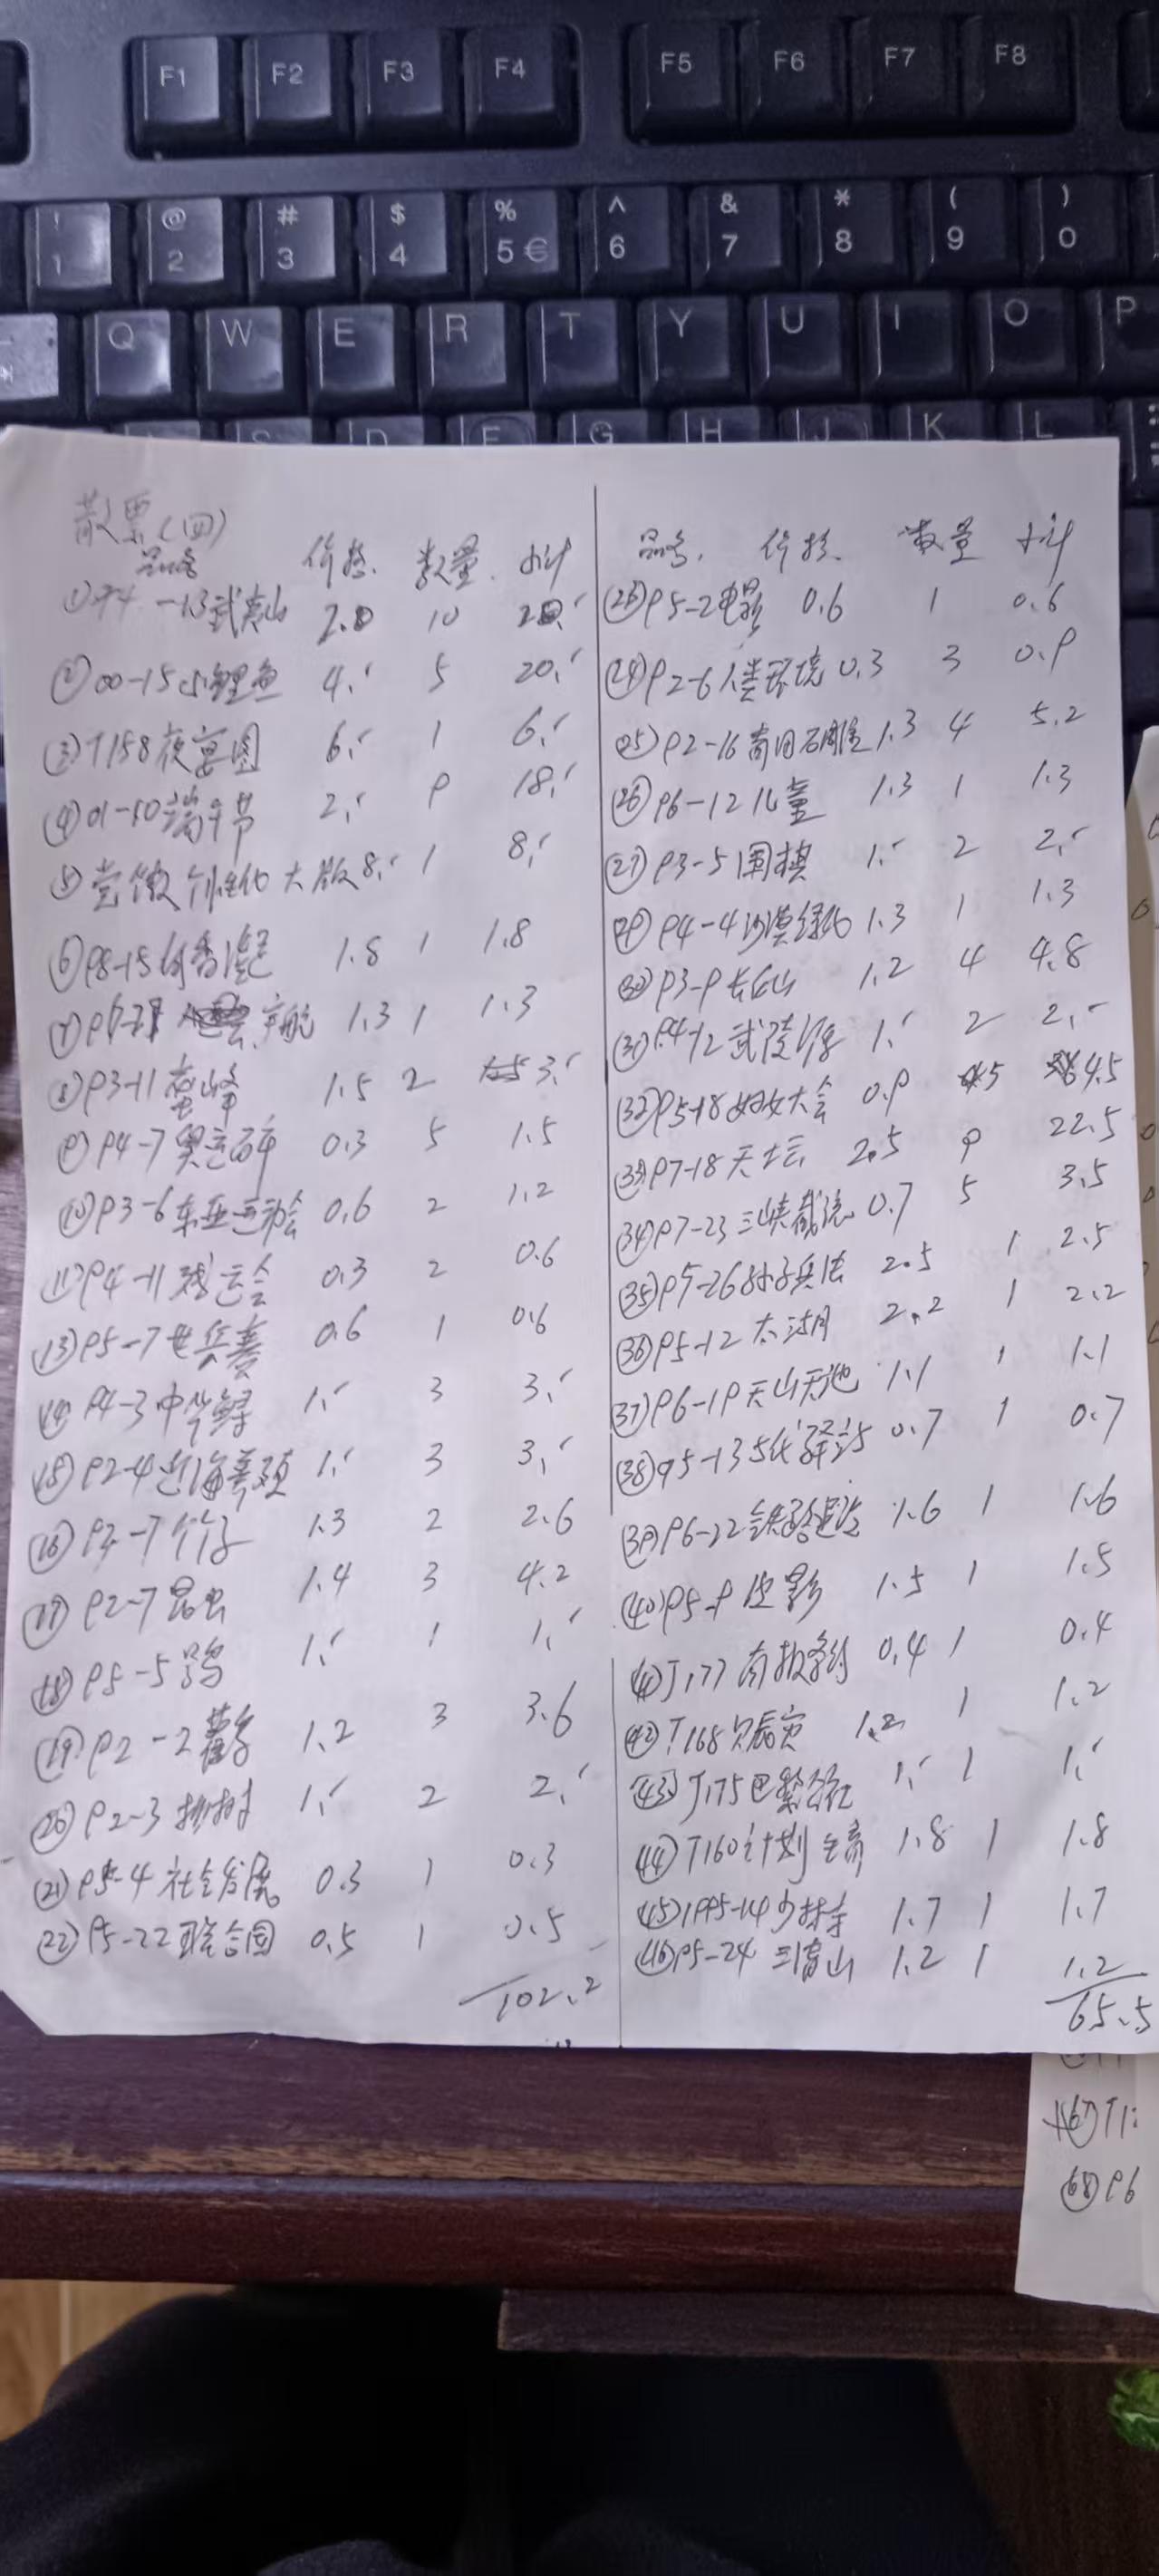 F1 F2 F3 F4 F5 F6 F7 F8
! 1 @ 2 # 3 $ 4 % 5 € ^ 6 & 7 * 8 ( 9 ) 0
Q W E R T Y U I O P
S D F G H J K L
散票(四)
品名 价格. 数量. 小计
①94-13武夷山 2.0 10 20.-
②00-15小鲤鱼 4.- 5 20.-
③T158夜宴图 6.- 1 6.-
④01-10端午节 2.- 9 18.-
⑤党徽个性化大版 8.- 1 8.-
⑥98-15何香凝 1.8 1 1.8
⑦96- 1.3 1 1.3
⑧93-11 1.5 2 3.-
⑨94-7奥运百年 0.3 5 1.5
⑩93-6东亚运动会 0.6 2 1.2
⑪94-11残运会 0.3 2 0.6
⑬95-7世乒赛 0.6 1 0.6
⑭94-3中华鲟 1.- 3 3.-
⑮92-4近海养殖 1.- 3 3.-
⑯93-7竹子 1.3 2 2.6
⑰92-7昆虫 1.4 3 4.2
⑱95-5 1.- 1 1.-
⑲92-2鹳 1.2 3 3.6
⑳92-3杉树 1.- 2 2.-
㉑95-4社会发展 0.3 1 0.3
㉒95-22联合国 0.5 1 0.5
102.2
品名. 价格. 数量 小计
㉓95-2电影 0.6 1 0.6
㉔92-6人类环境 0.3 3 0.9
㉕92-16青田石雕 1.3 4 5.2
㉖96-12儿童 1.3 1 1.3
㉗93-5围棋 1.- 2 2.-
㉙94-4沙漠绿化 1.3 1 1.3
㉚93-9长白山 1.2 4 4.8
㉛94-12武陵源 1.- 2 2.-
㉜95-18妇女大会 0.9 5 4.5
㉝97-18天坛 2.5 9 22.5
㉞97-23三峡截流 0.7 5 3.5
㉟95-26孙子兵法 2.5 1 2.5
㊱95-12太湖 2.2 1 2.2
㊲96-19天山天池 1.1 1 1.1
㊳95-13古代驿站 0.7 1 0.7
㊴96-22铁路建设 1.6 1 1.6
㊵95-9皮影 1.5 1 1.5
㊶J177南极条约 0.4 1 0.4
㊷T168赈灾 1.2 1 1.2
㊸J175巴黎公社 1.- 1 1.-
㊹T160计划生育 1.8 1 1.8
㊺1995-14少林寺 1.7 1 1.7
㊻95-24三清山 1.2 1 1.2
65.5
67 T1
68 96